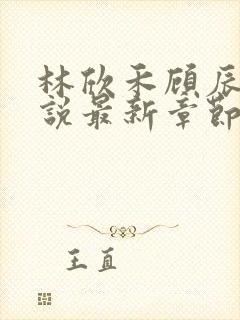 林欣禾顾辰
說最新章節
王直